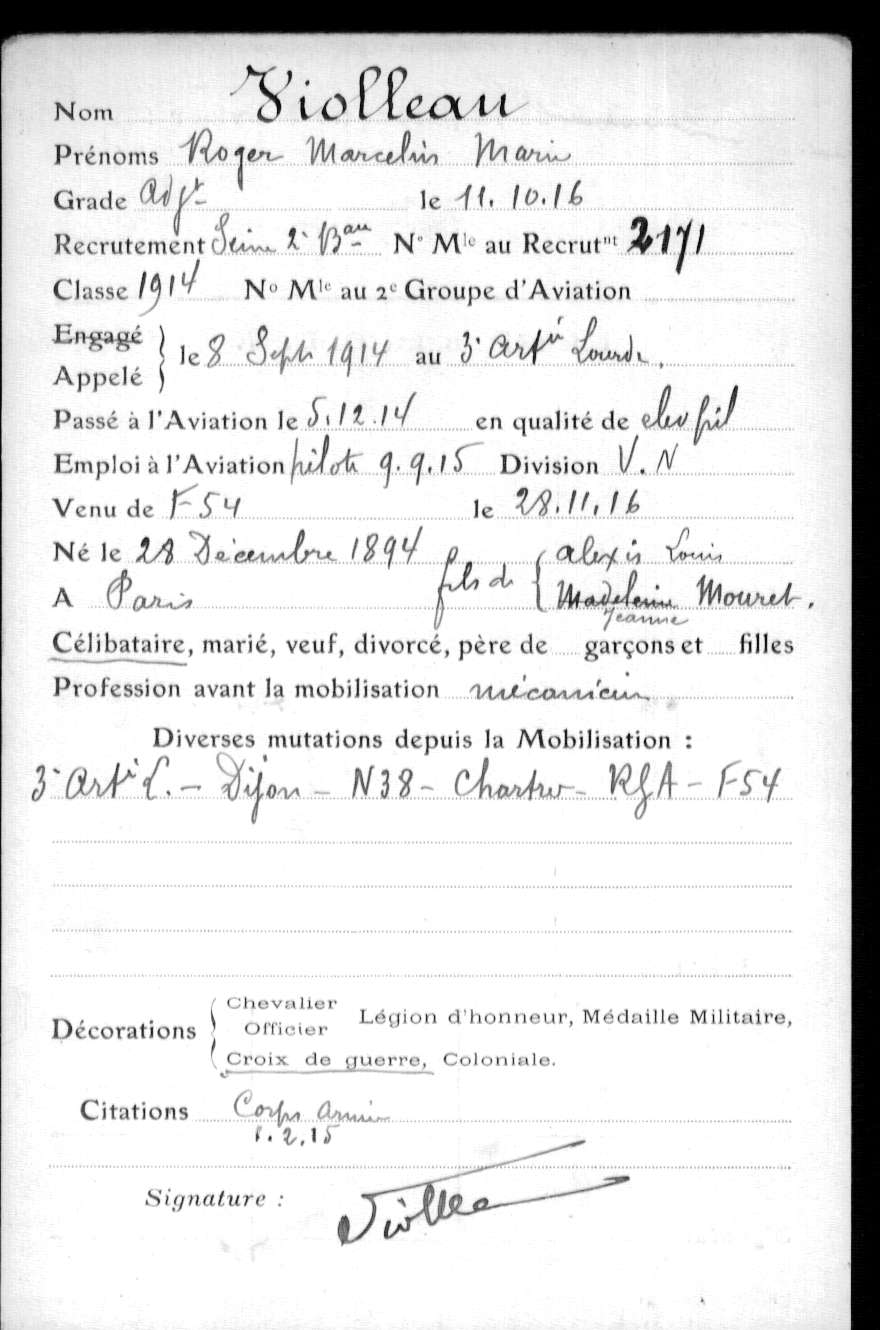 Nom Violleau
Prénoms Roger Marcelin Marie
Grade Adjt le 11.10.16
Recrutement Seine 2e Bau N° Mle au Recrutnt 2171
Classe 1914 No Mle au 2e Groupe d'Aviation
Engagé
Appelé } le 8 Sept 1914 au 3e Artie Lourde.
Passé à l'Aviation le 5.12.14 en qualité de elev pil
Emploi à l'Aviation pilote 9.9.15 Division V.N
Venu de F54 le 28.11.16
Né le 28 Décembre 1894 fils de { Alexis Louis
A Paris Madeleine Mouret.
Jeanne
Célibataire, marié, veuf, divorcé, père de garçons et filles
Profession avant la mobilisation mécanicien
Diverses mutations depuis la Mobilisation :
3e Artie L. - Dijon - N38 - Chartres - RGA - F54
Décorations { Chevalier
Officier Légion d'honneur, Médaille Militaire,
Croix de guerre, Coloniale.
Citations Corps Armée
1.2.15
Signature : Violleau